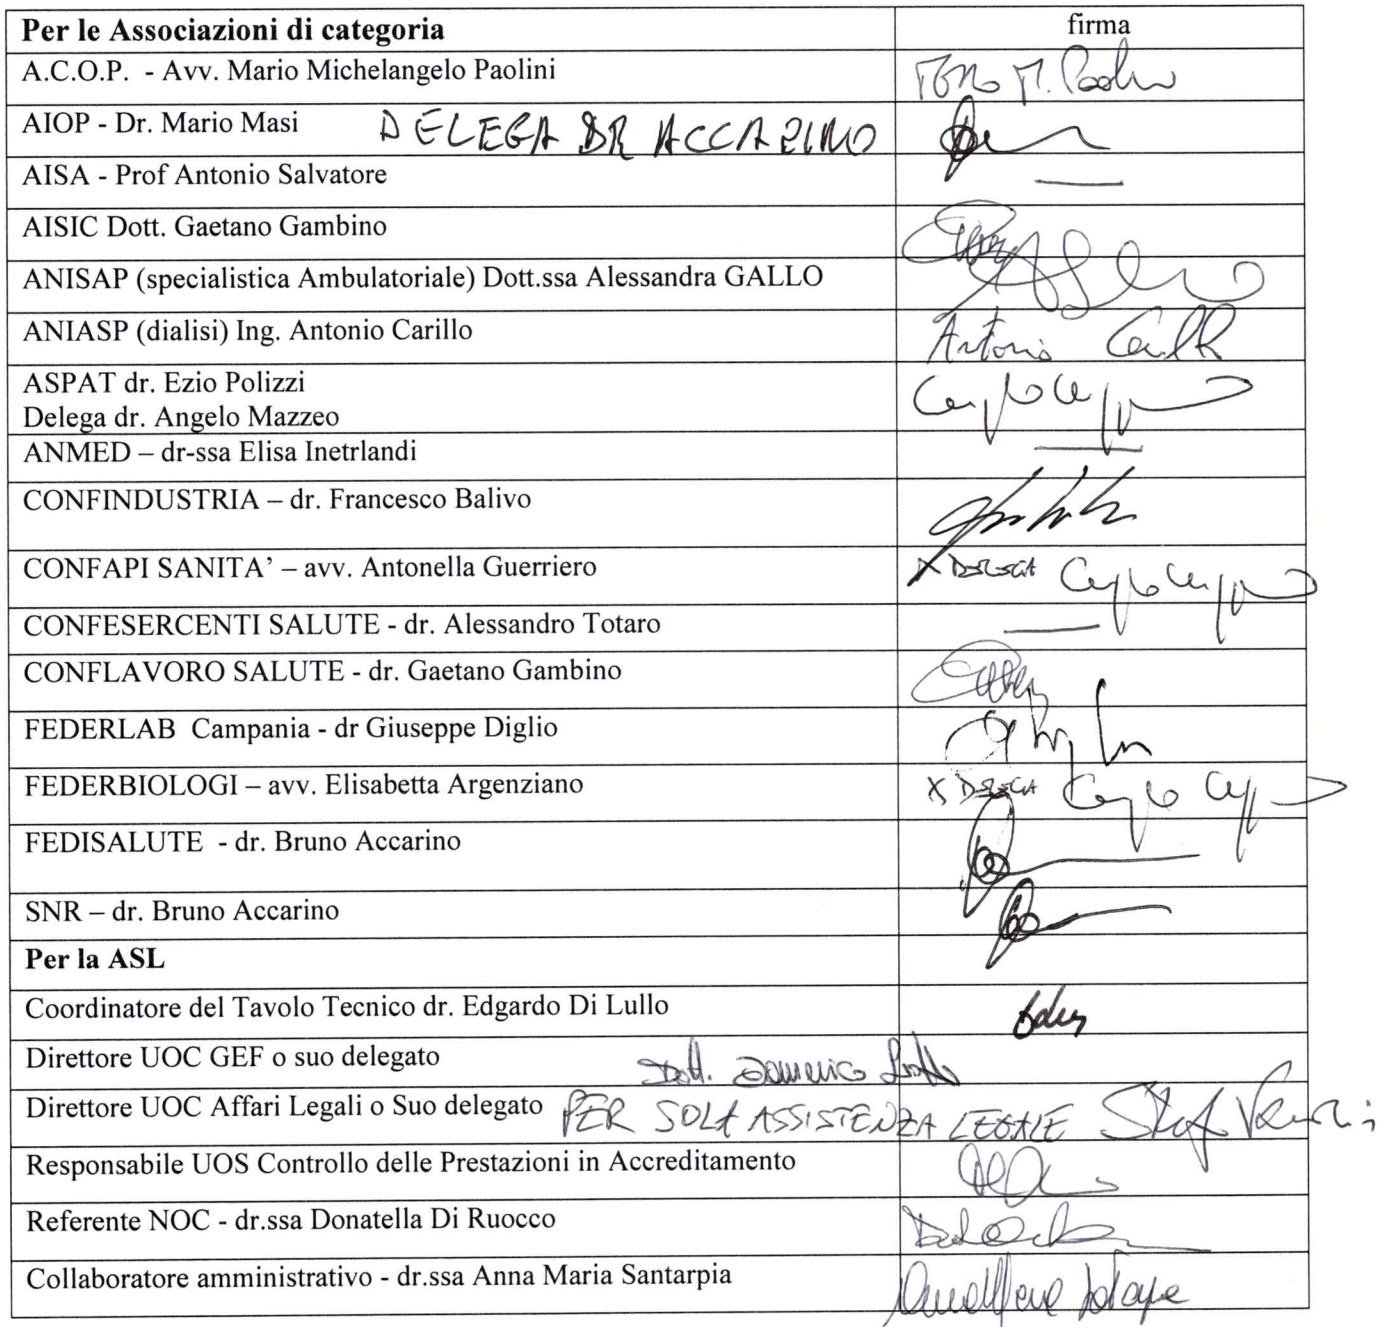 Per le Associazioni di categoria firma
A.C.O.P. - Avv. Mario Michelangelo Paolini
AIOP - Dr. Mario Masi DELEGA DR ACCARINO
AISA - Prof Antonio Salvatore
AISIC Dott. Gaetano Gambino
ANISAP (specialistica Ambulatoriale) Dott.ssa Alessandra GALLO
ANIASP (dialisi) Ing. Antonio Carillo Antonio Carillo
ASPAT dr. Ezio Polizzi
Delega dr. Angelo Mazzeo
ANMED – dr-ssa Elisa Inetrlandi
CONFINDUSTRIA – dr. Francesco Balivo
CONFAPI SANITA’ – avv. Antonella Guerriero X DELEGA
CONFESERCENTI SALUTE - dr. Alessandro Totaro
CONFLAVORO SALUTE - dr. Gaetano Gambino
FEDERLAB Campania - dr Giuseppe Diglio
FEDERBIOLOGI – avv. Elisabetta Argenziano X DELEGA
FEDISALUTE - dr. Bruno Accarino
SNR – dr. Bruno Accarino
Per la ASL
Coordinatore del Tavolo Tecnico dr. Edgardo Di Lullo
Direttore UOC GEF o suo delegato Dott. Domenico
Direttore UOC Affari Legali o Suo delegato PER SOLA ASSISTENZA LEGALE
Responsabile UOS Controllo delle Prestazioni in Accreditamento
Referente NOC - dr.ssa Donatella Di Ruocco
Collaboratore amministrativo - dr.ssa Anna Maria Santarpia